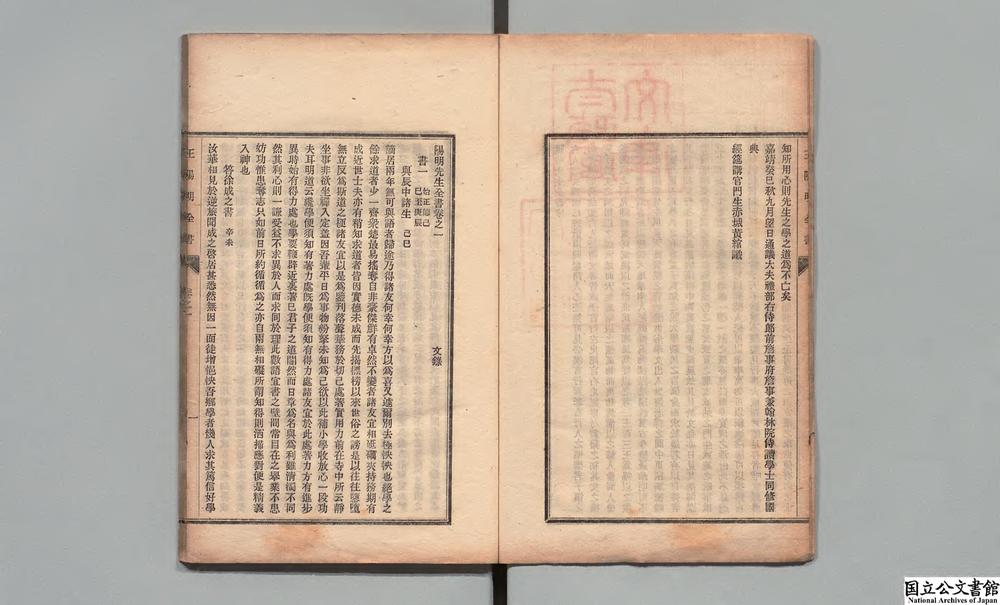 知所用心則先生之學之道為不亡矣
嘉靖癸巳秋九月望日通議大夫禮部右侍郎前詹事府詹事兼翰林院侍讀學士同修國
典
經筵講官門生赤城黃綰識
陽明先生全書卷之一
文錄
書一
始正德己
巳至庚辰
與辰中諸生 己巳
謫居兩年無可與語者歸途乃得諸友何幸何幸方以為喜又遽爾別去極怏怏也絕學之
餘求道者少一齊衆楚最易搖奪自非豪傑鮮有卓然不變者諸友宜相砥礪夾持務期有
成近世士夫亦有稍知求道者皆因實德未成而先揭標榜以來世俗之謗是以往往隳墮
無立反為斯道之梗諸友宜以是為鑒刊落聲華務於切己處著實用力前在寺中所云靜
坐事非欲坐禪入定蓋因吾輩平日為事物紛拏未知為己欲以此補小學收放心一段功
夫耳明道云纔學便須知有著力處既學便須知有得力處諸友宜於此處著力方有進步
異時始有得力處也學要鞭辟近裏著己君子之道闇然而日章為名與為利雖清濁不同
然其利心則一謙受益不求異於人而求同於理此數語宜書之壁間常目在之舉業不患
妨功惟患奪志只如前日所約循循為之亦自兩無相礙所謂知得則洒掃應對便是精義
入神也
答徐成之書 辛未
汝華相見於逆旅聞成之啓居甚悉然無因一面徒增悒怏吾鄉學者幾人求其篤信好學
王陽明全書
卷之一
一
国立公文書館
National Archives of Japan